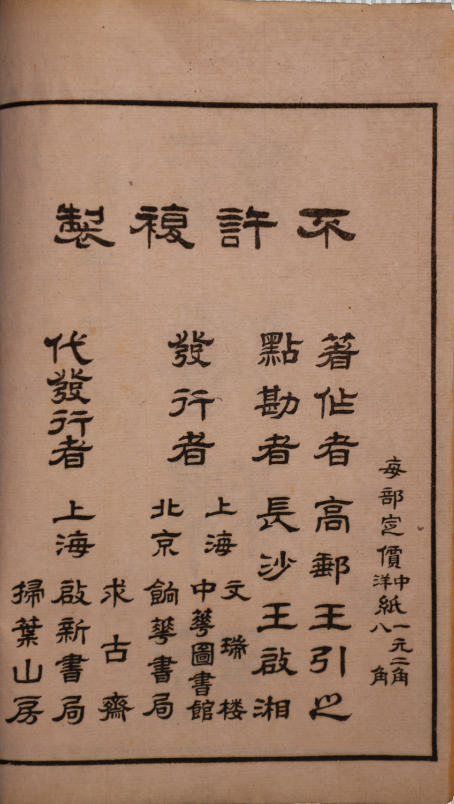 不許複製
每部定價中紙一元二角
洋紙八角
著作者高郵王引之
點勘者長沙王啟湘
發行者
上海文瑞楼
中華圖書館
北京餉華書局
求古齋
代發行者上海啟新書局
掃葉山房